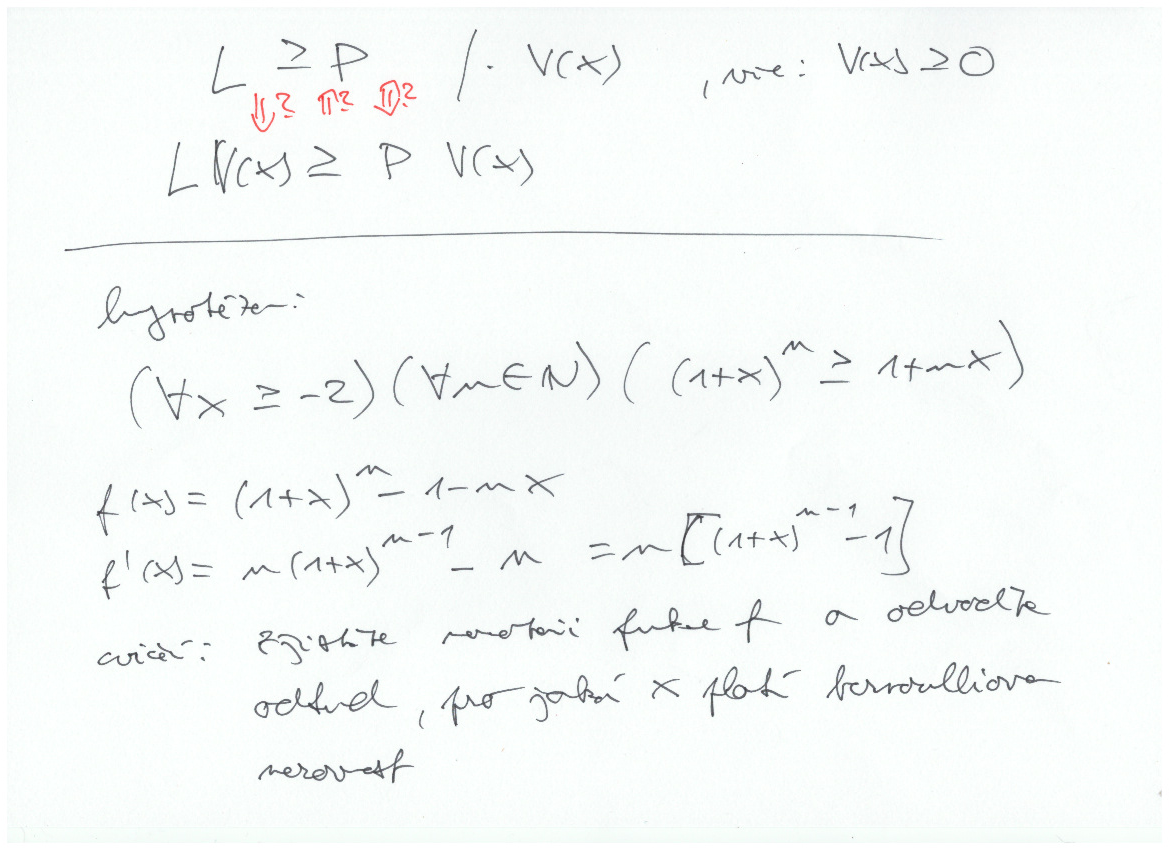 L ≥ P /· V(x) , víe: V(x) ≥ 0
⇓? ⇑? ⇓?
L V(x) ≥ P V(x)
hypotéza:
(∀x ≥ -2)(∀n∈N)( (1+x)^n ≥ 1+nx)
f(x) = (1+x)^n - 1-nx
f'(x) = n(1+x)^{n-1} - n = n[(1+x)^{n-1} - 1]
cvičení: zjistěte monotonii funkce f a odvoďte
odtud, pro jaká x platí bernoulliova
nerovnost